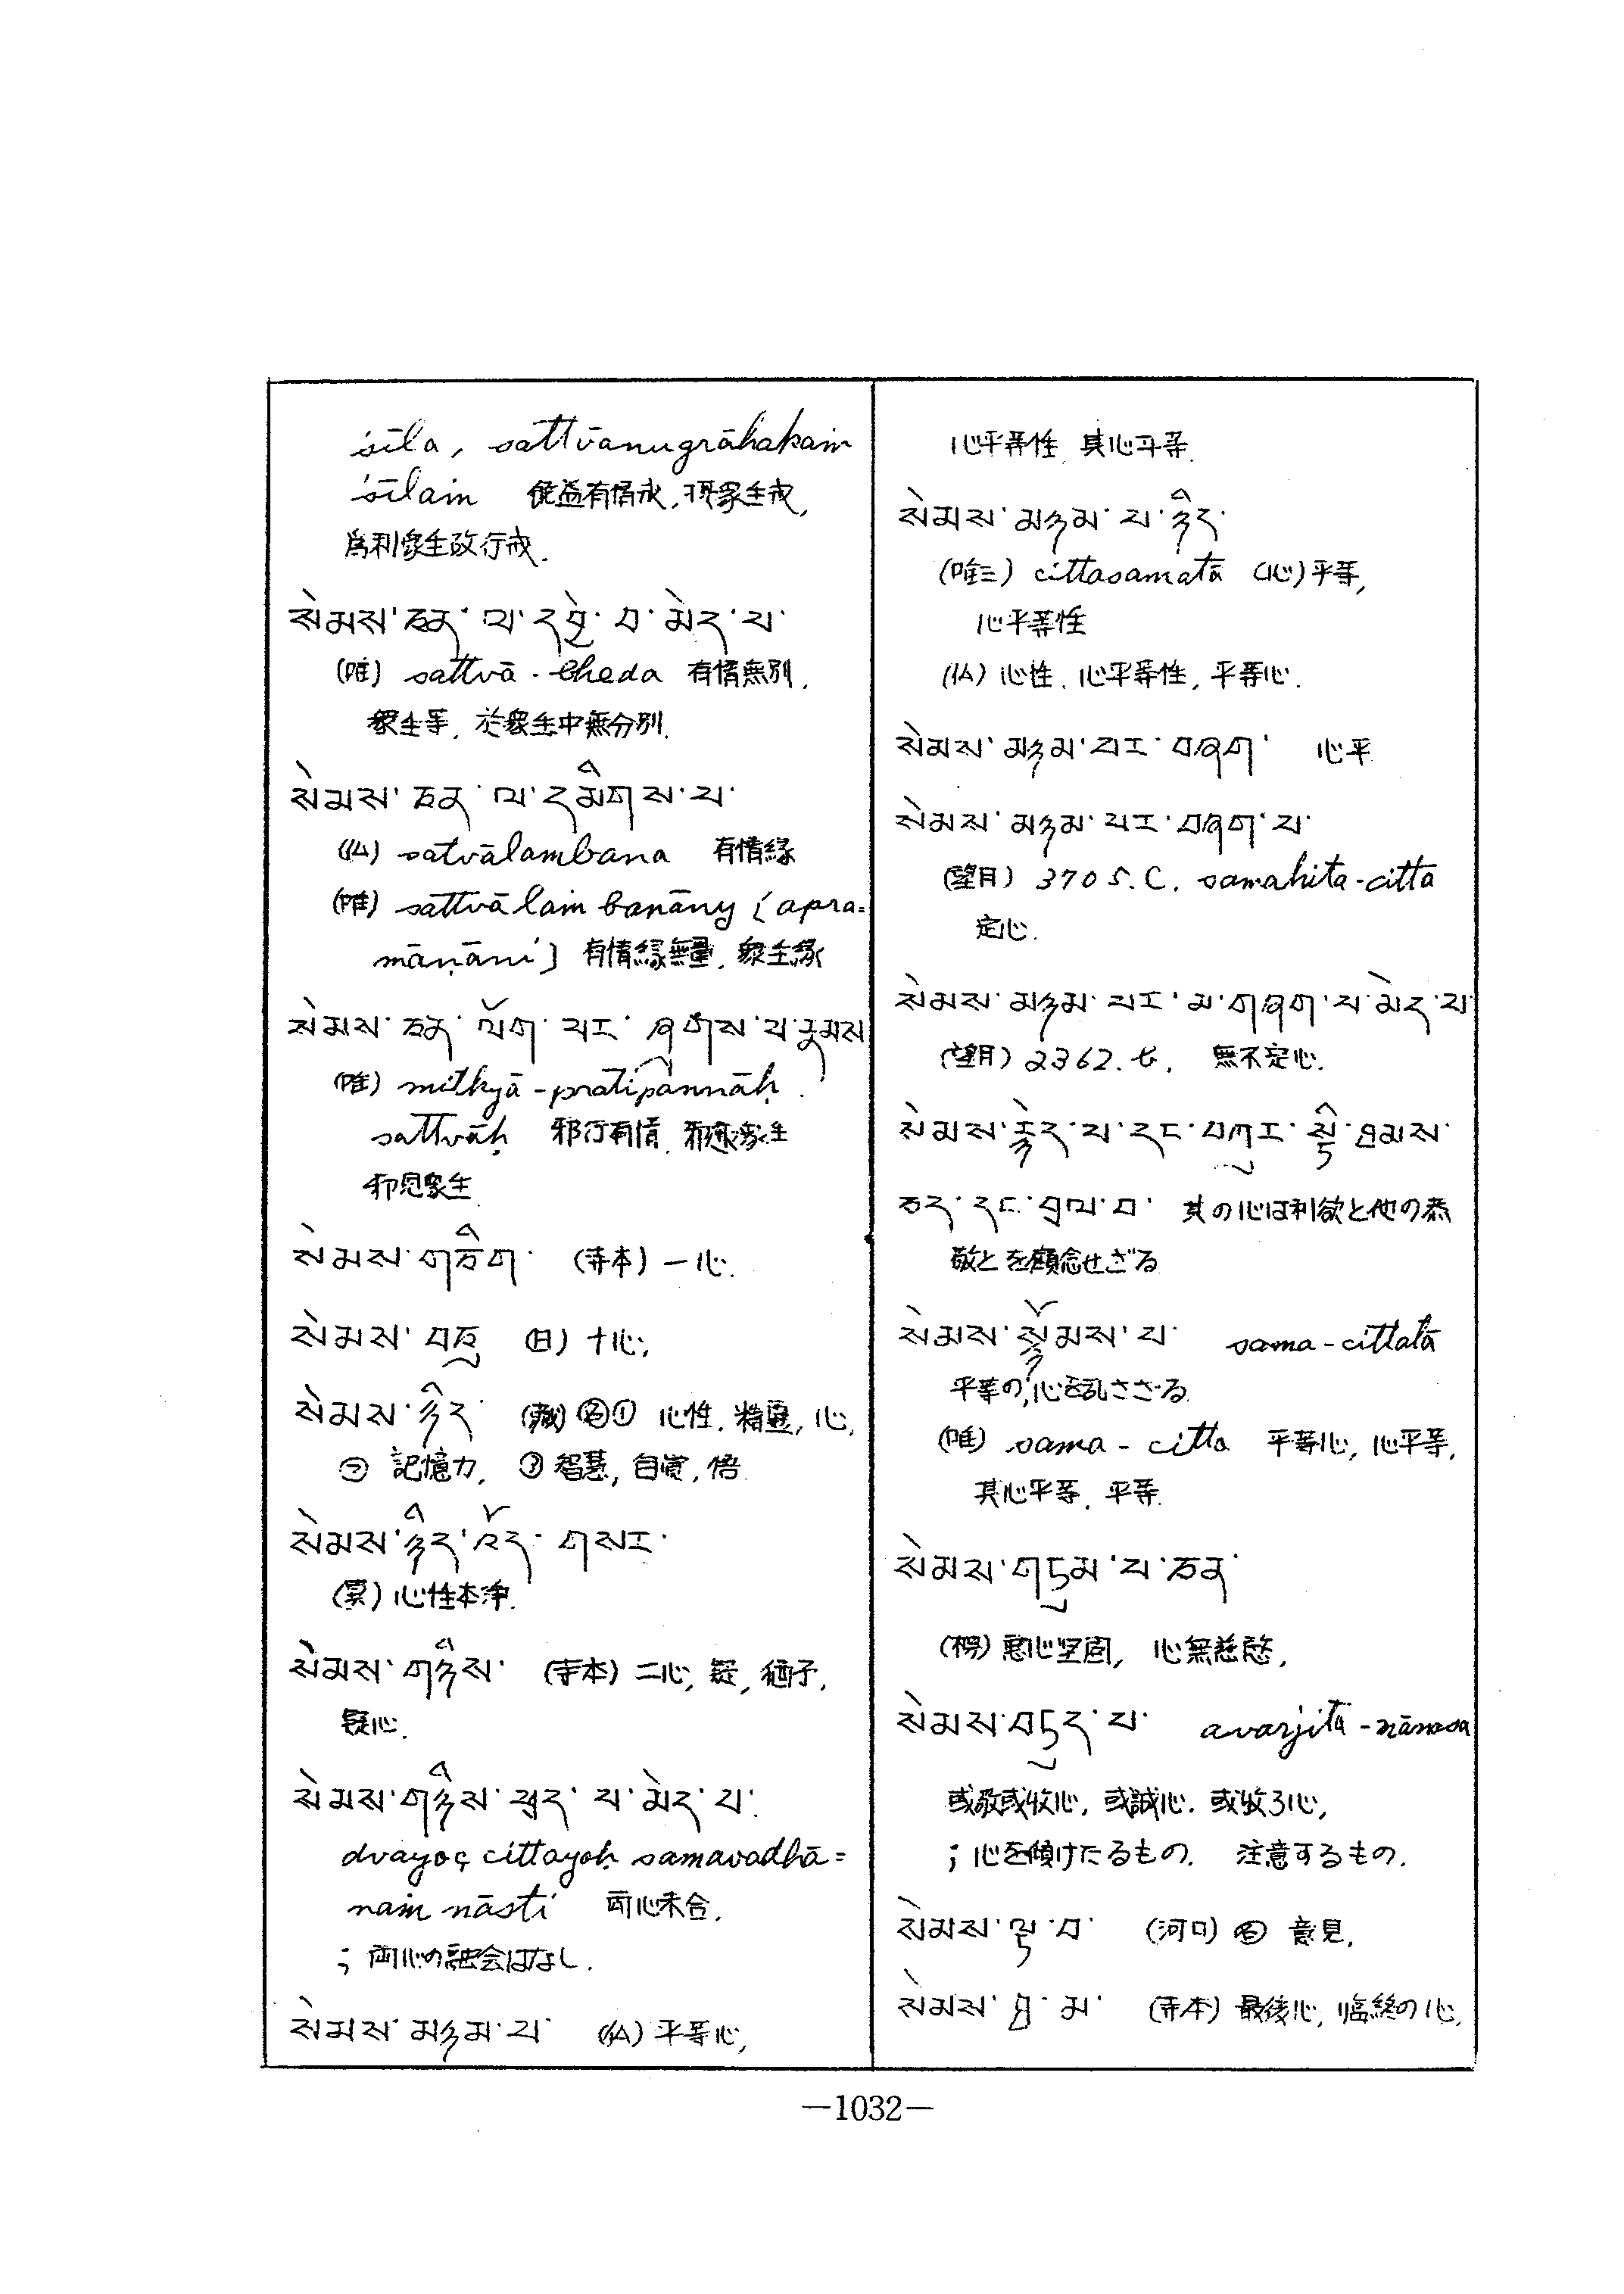 śīla, sattvānugrāhakaṁ
śīlaṁ 饒益有情戒, 摂衆生戒,
為利衆生故行戒.
སེམས་ཅན་ལ་དབྱེ་བ་མེད་པ་
(唯) sattvā-bheda 有情無別,
衆生等, 於衆生中無分別.
སེམས་ཅན་ལ་དམིགས་པ་
(仏) satvālambana 有情縁
(唯) sattvālaṁbanāny [apra=
māṇāni] 有情縁無量, 衆生縁
སེམས་ཅན་ལོག་པར་ཞུགས་པ་རྣམས
(唯) mithyā-pratipannāḥ
sattvāḥ 邪行有情, 邪逕衆生
邪見衆生
སེམས་གཅིག་ (寺本) 一心.
སེམས་བཅུ (日) 十心,
སེམས་ཉིད་ (蔵) 名① 心性, 精霊, 心,
② 記憶力, ③ 智慧, 自覚, 悟.
སེམས་ཉིད་འོད་གསར་
(累) 心性本浄.
སེམས་གཉིས་ (寺本) 二心, 疑, 猶予,
疑心.
སེམས་གཉིས་ཕྲད་པ་མེད་པ་
dvayoś cittayoḥ samavadhā=
naṁ nāsti 両心未合.
; 両心の融会はなし.
སེམས་མཉམ་པ་ (仏) 平等心,
心平等性, 其心平等.
སེམས་མཉམ་པ་ཉིད་
(唯三) cittasamatā (心)平等,
心平等性
(仏) 心性, 心平等性, 平等心.
སེམས་མཉམ་པར་བཞག་ 心平
སེམས་མཉམ་པར་བཞག་པ་
(望月) 3705.C. samahita-citta
定心.
སེམས་མཉམ་པར་མ་གཞག་པ་མེད་པ་
(望月) 2362. 無不定心.
སེམས་རྙེད་པ་དང་བཀུར་སྟི་ཐམས་
ཅད་དང་བྲལ་བ་ 其の心は利欲と他の恭
敬とを顧念せざる
སེམས་སྙོམས་པ་ sama-cittatā
平等の, 心を乱さざる.
(唯) sama-citta 平等心, 心平等,
其心平等, 平等.
སེམས་གཏུམ་པ་ཅན་
(楞) 悪心堅固, 心無慈愍,
སེམས་བཏུད་པ་ avarjita-mānasa
或敬或收心, 或誠心. 或收了心,
; 心を傾けたるもの. 注意するもの.
སེམས་ལྟ་བ་ (河口) 名 意見,
སེམས་ཐ་མ་ (寺本) 最後心, 臨終の心,
—1032—